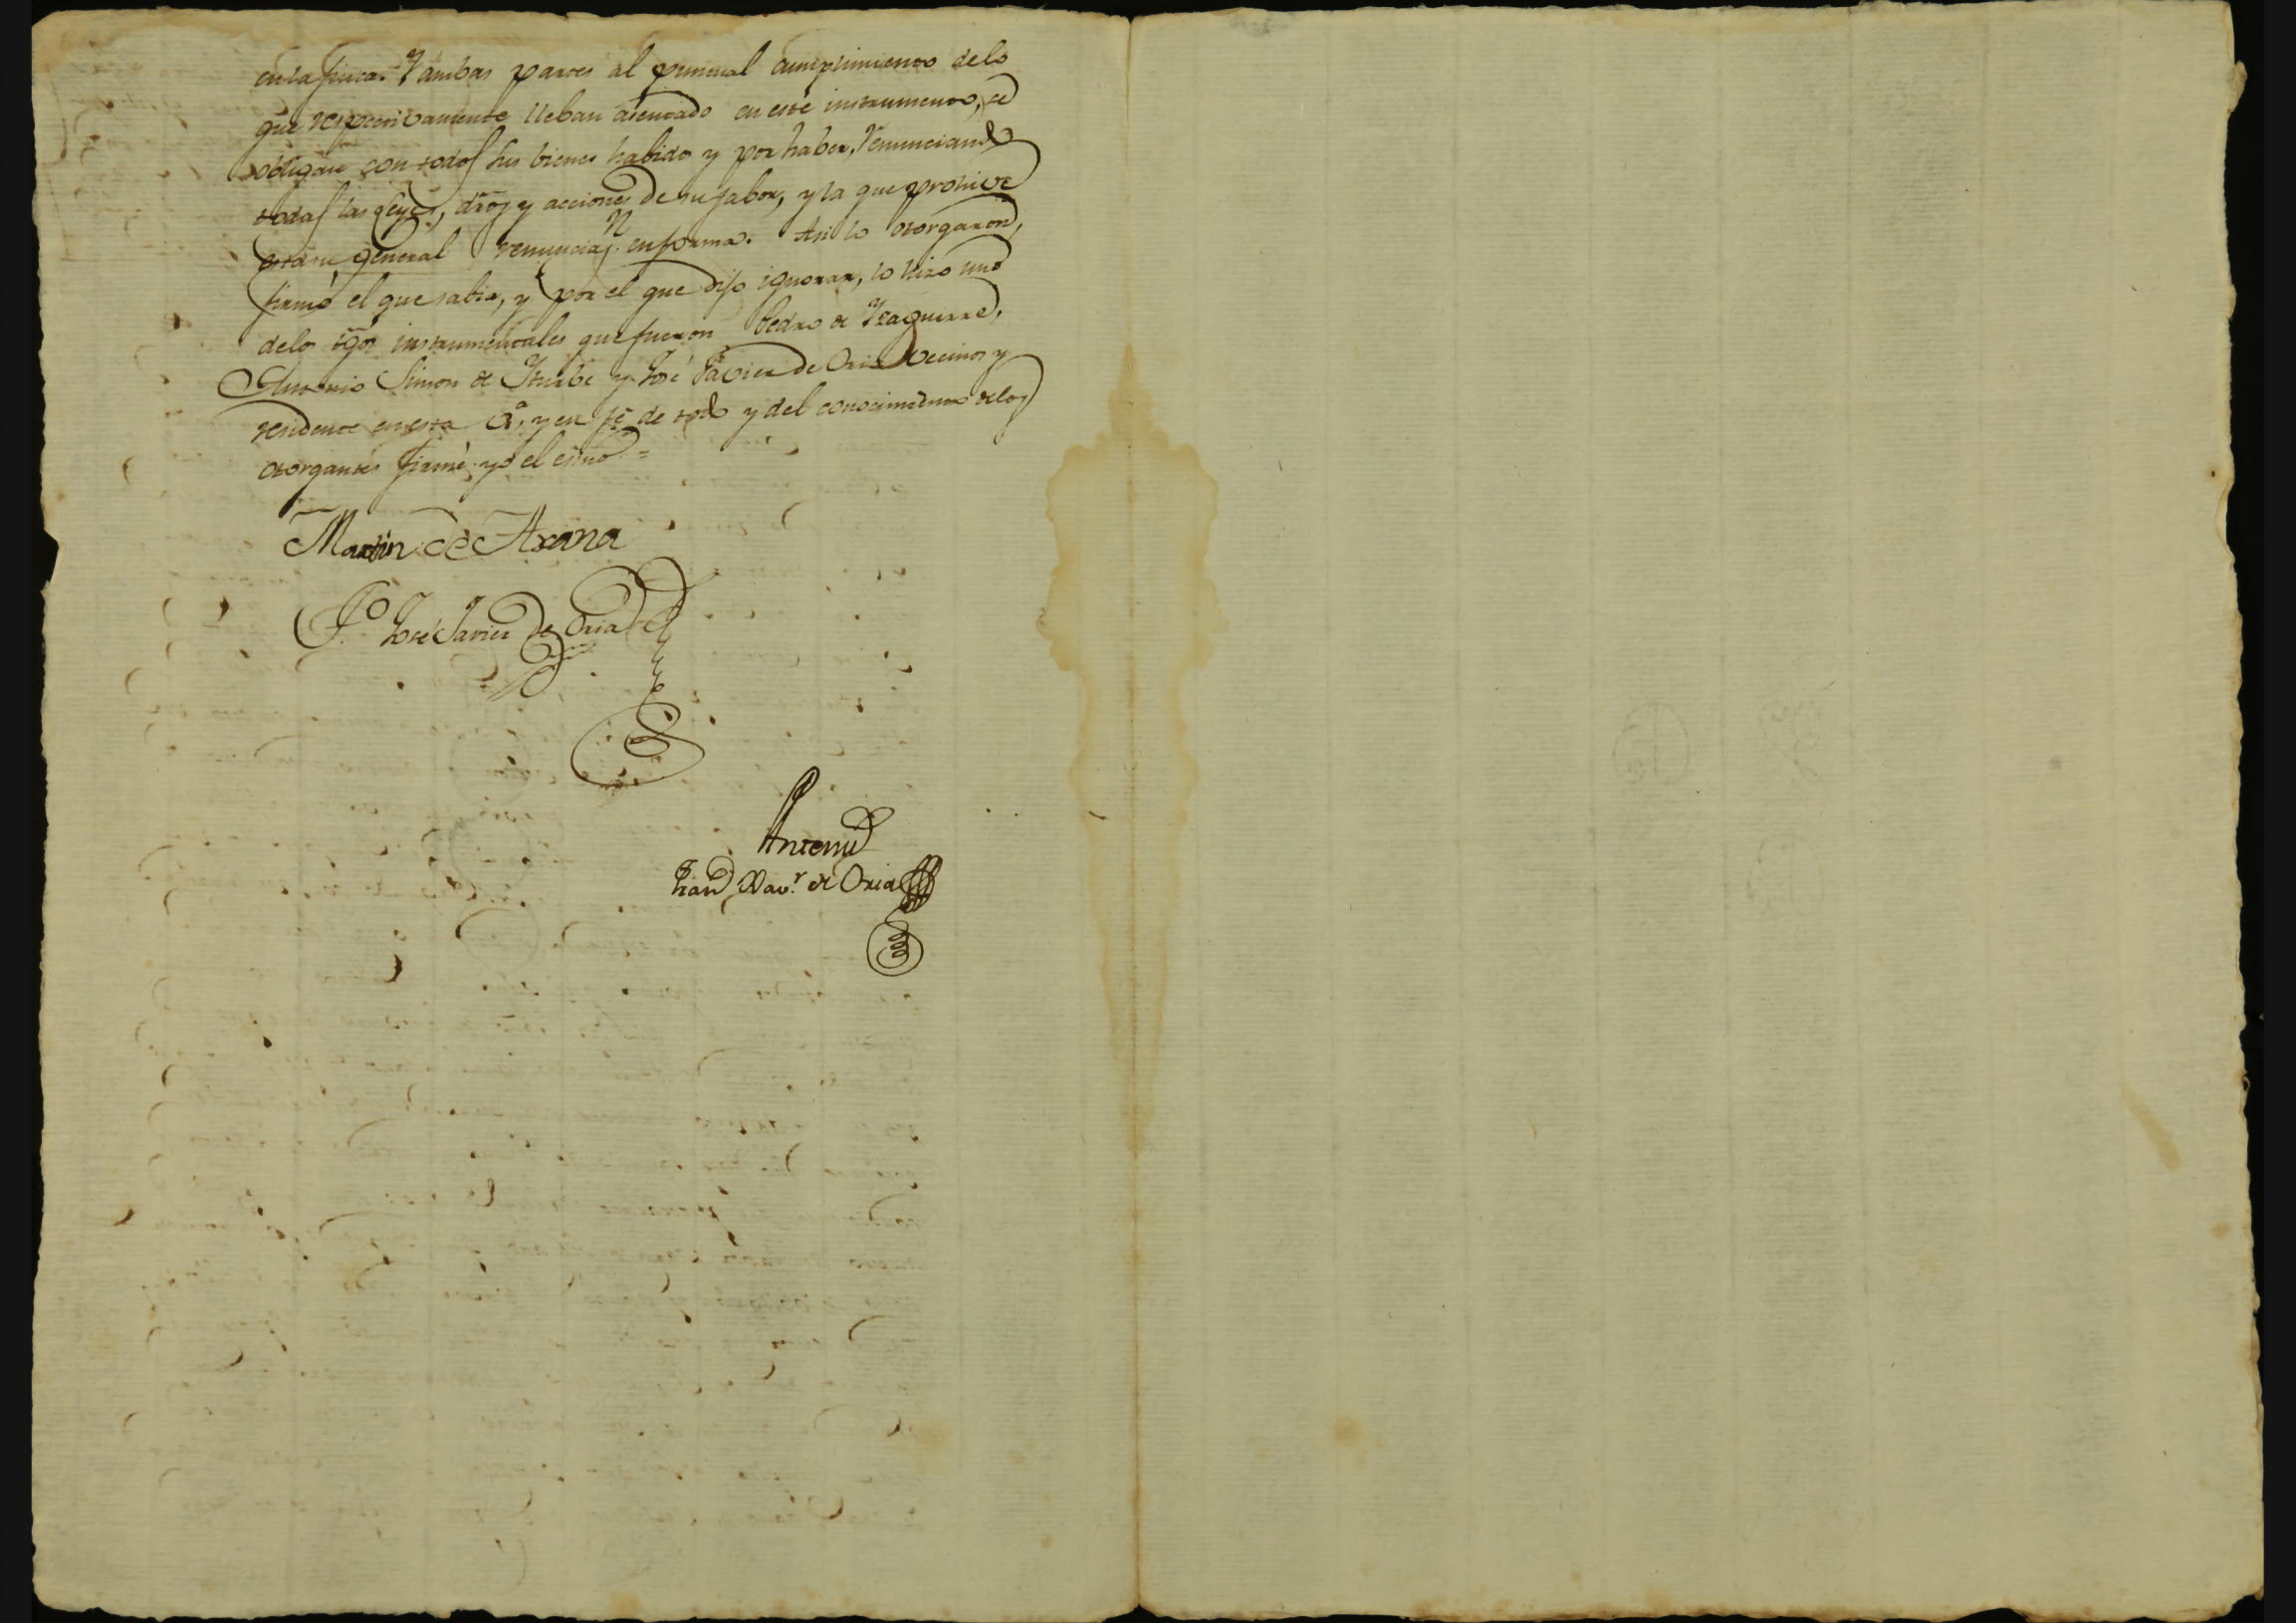 en la finca. Y ambas partes al puntual cumplimiento de lo
que respectivamente lleban asentado en este instrumento, se
obligan con todos sus bienes habidos y por haber, renunciando
todas las leyes, dros y acciones de su fabor, y la que prohive
general renunciaz.n en forma. Asi lo otorgaron,
firmó el que sabia, y por el que dijo ignorar, lo hizo uno
de los tgos instrumentales que fueron Pedro de Yzaguirre,
Antonio Simon de Yturbe y José Javier de Oria vecinos y
residente en esta va. y en fe de todo y del conocimiento de los
otorgantes firmé yo el esno =
Martin de Arana
T.o José Javier de Oria
Antemi
Juan Xav.r de Oria